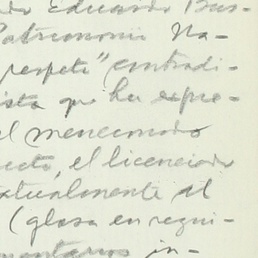 do Eduardo Bus-
Patrimonio Na-
respeto" contradi-
ista que ha expre-
el mencionado
ecto, el licenciado
extualmente al
(glosa en requi-
mentarios in-